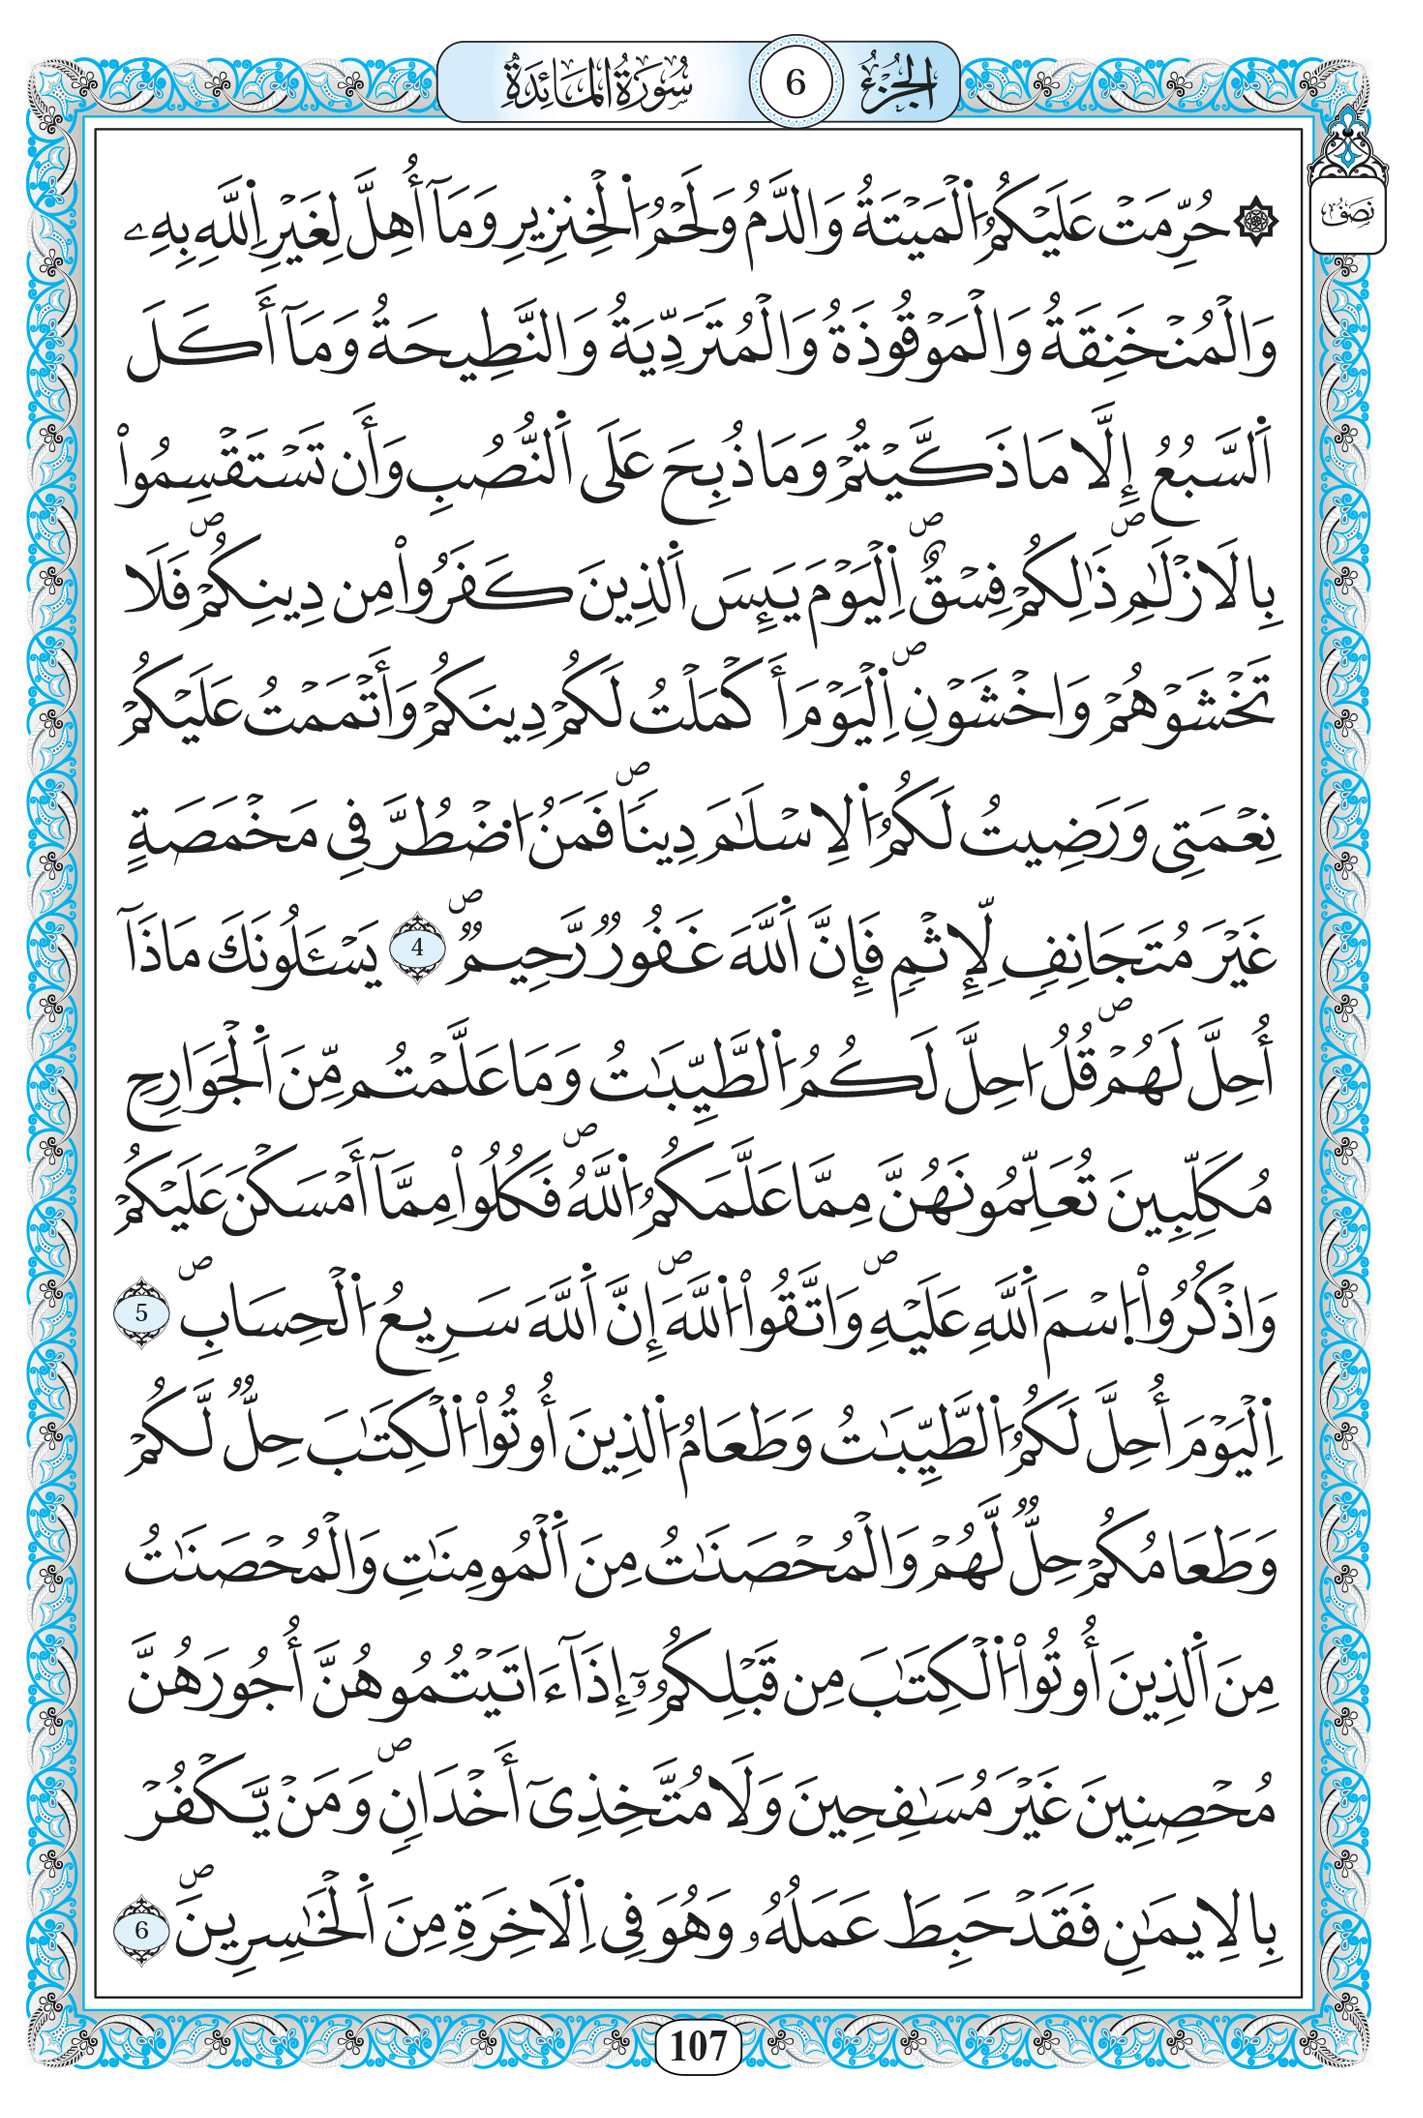 الجزء 6 سورة المائدة
نصف
۞ حُرِّمَتْ عَلَيْكُمُ اُ۬لْمَيْتَةُ وَالدَّمُ وَلَحْمُ اُ۬لْخِنزِيرِ وَمَآ أُهِلَّ لِغَيْرِ اِ۬للَّهِ بِهِۦ
وَالْمُنْخَنِقَةُ وَالْمَوْقُوذَةُ وَالْمُتَرَدِّيَةُ وَالنَّطِيحَةُ وَمَآ أَكَلَ
اَ۬لسَّبُعُ إِلَّا مَا ذَكَّيْتُمْ وَمَا ذُبِحَ عَلَى اَ۬لنُّصُبِ وَأَن تَسْتَقْسِمُواْ
بِالَازْلَٰمِ ص ذَٰلِكُمْ فِسْقٌ ص اِ۬لْيَوْمَ يَئِسَ اَ۬لذِينَ كَفَرُواْ مِن دِينِكُمْ ص فَلَا
تَخْشَوْهُمْ وَاخْشَوْنِ ص اِ۬لْيَوْمَ أَكْمَلْتُ لَكُمْ دِينَكُمْ وَأَتْمَمْتُ عَلَيْكُمْ
نِعْمَتِي وَرَضِيتُ لَكُمُ اُ۬لِاسْلَٰمَ دِيناً ص فَمَنُ اُضْطُرَّ فِي مَخْمَصَةٍ
غَيْرَ مُتَجَانِفٍ لِّإِثْمٍ فَإِنَّ اَ۬للَّهَ غَفُورٌ رَّحِيمٌ ص 4 يَسْـَٔلُونَكَ مَاذَآ
أُحِلَّ لَهُمْ ص قُلُ احِلَّ لَكُمُ اُ۬لطَّيِّبَٰتُ وَمَا عَلَّمْتُم مِّنَ اَ۬لْجَوَارِحِ
مُكَلِّبِينَ تُعَلِّمُونَهُنَّ مِمَّا عَلَّمَكُمُ اُ۬للَّهُ ص فَكُلُواْ مِمَّآ أَمْسَكْنَ عَلَيْكُمْ
وَاذْكُرُواْ اُ۪سْمَ اَ۬للَّهِ عَلَيْهِ ص وَاتَّقُواْ اُ۬للَّهَ ص إِنَّ اَ۬للَّهَ سَرِيعُ اُ۬لْحِسَابِ ص 5
اِ۬لْيَوْمَ أُحِلَّ لَكُمُ اُ۬لطَّيِّبَٰتُ وَطَعَامُ اُ۬لذِينَ أُوتُواْ اُ۬لْكِتَٰبَ حِلٌّ لَّكُمْ
وَطَعَامُكُمْ حِلٌّ لَّهُمْ وَالْمُحْصَنَٰتُ مِنَ اَ۬لْمُومِنَٰتِ وَالْمُحْصَنَٰتُ
مِنَ اَ۬لذِينَ أُوتُواْ اُ۬لْكِتَٰبَ مِن قَبْلِكُمُۥٓ إِذَآ ءَاتَيْتُمُوهُنَّ أُجُورَهُنَّ
مُحْصِنِينَ غَيْرَ مُسَٰفِحِينَ وَلَا مُتَّخِذِىٓ أَخْدَانٍ ص وَمَنْ يَّكْفُرْ
بِالِايمَٰنِ فَقَدْ حَبِطَ عَمَلُهُۥ وَهُوَ فِي اِ۬لَاخِرَةِ مِنَ اَ۬لْخَٰسِرِينَ ص 6
107